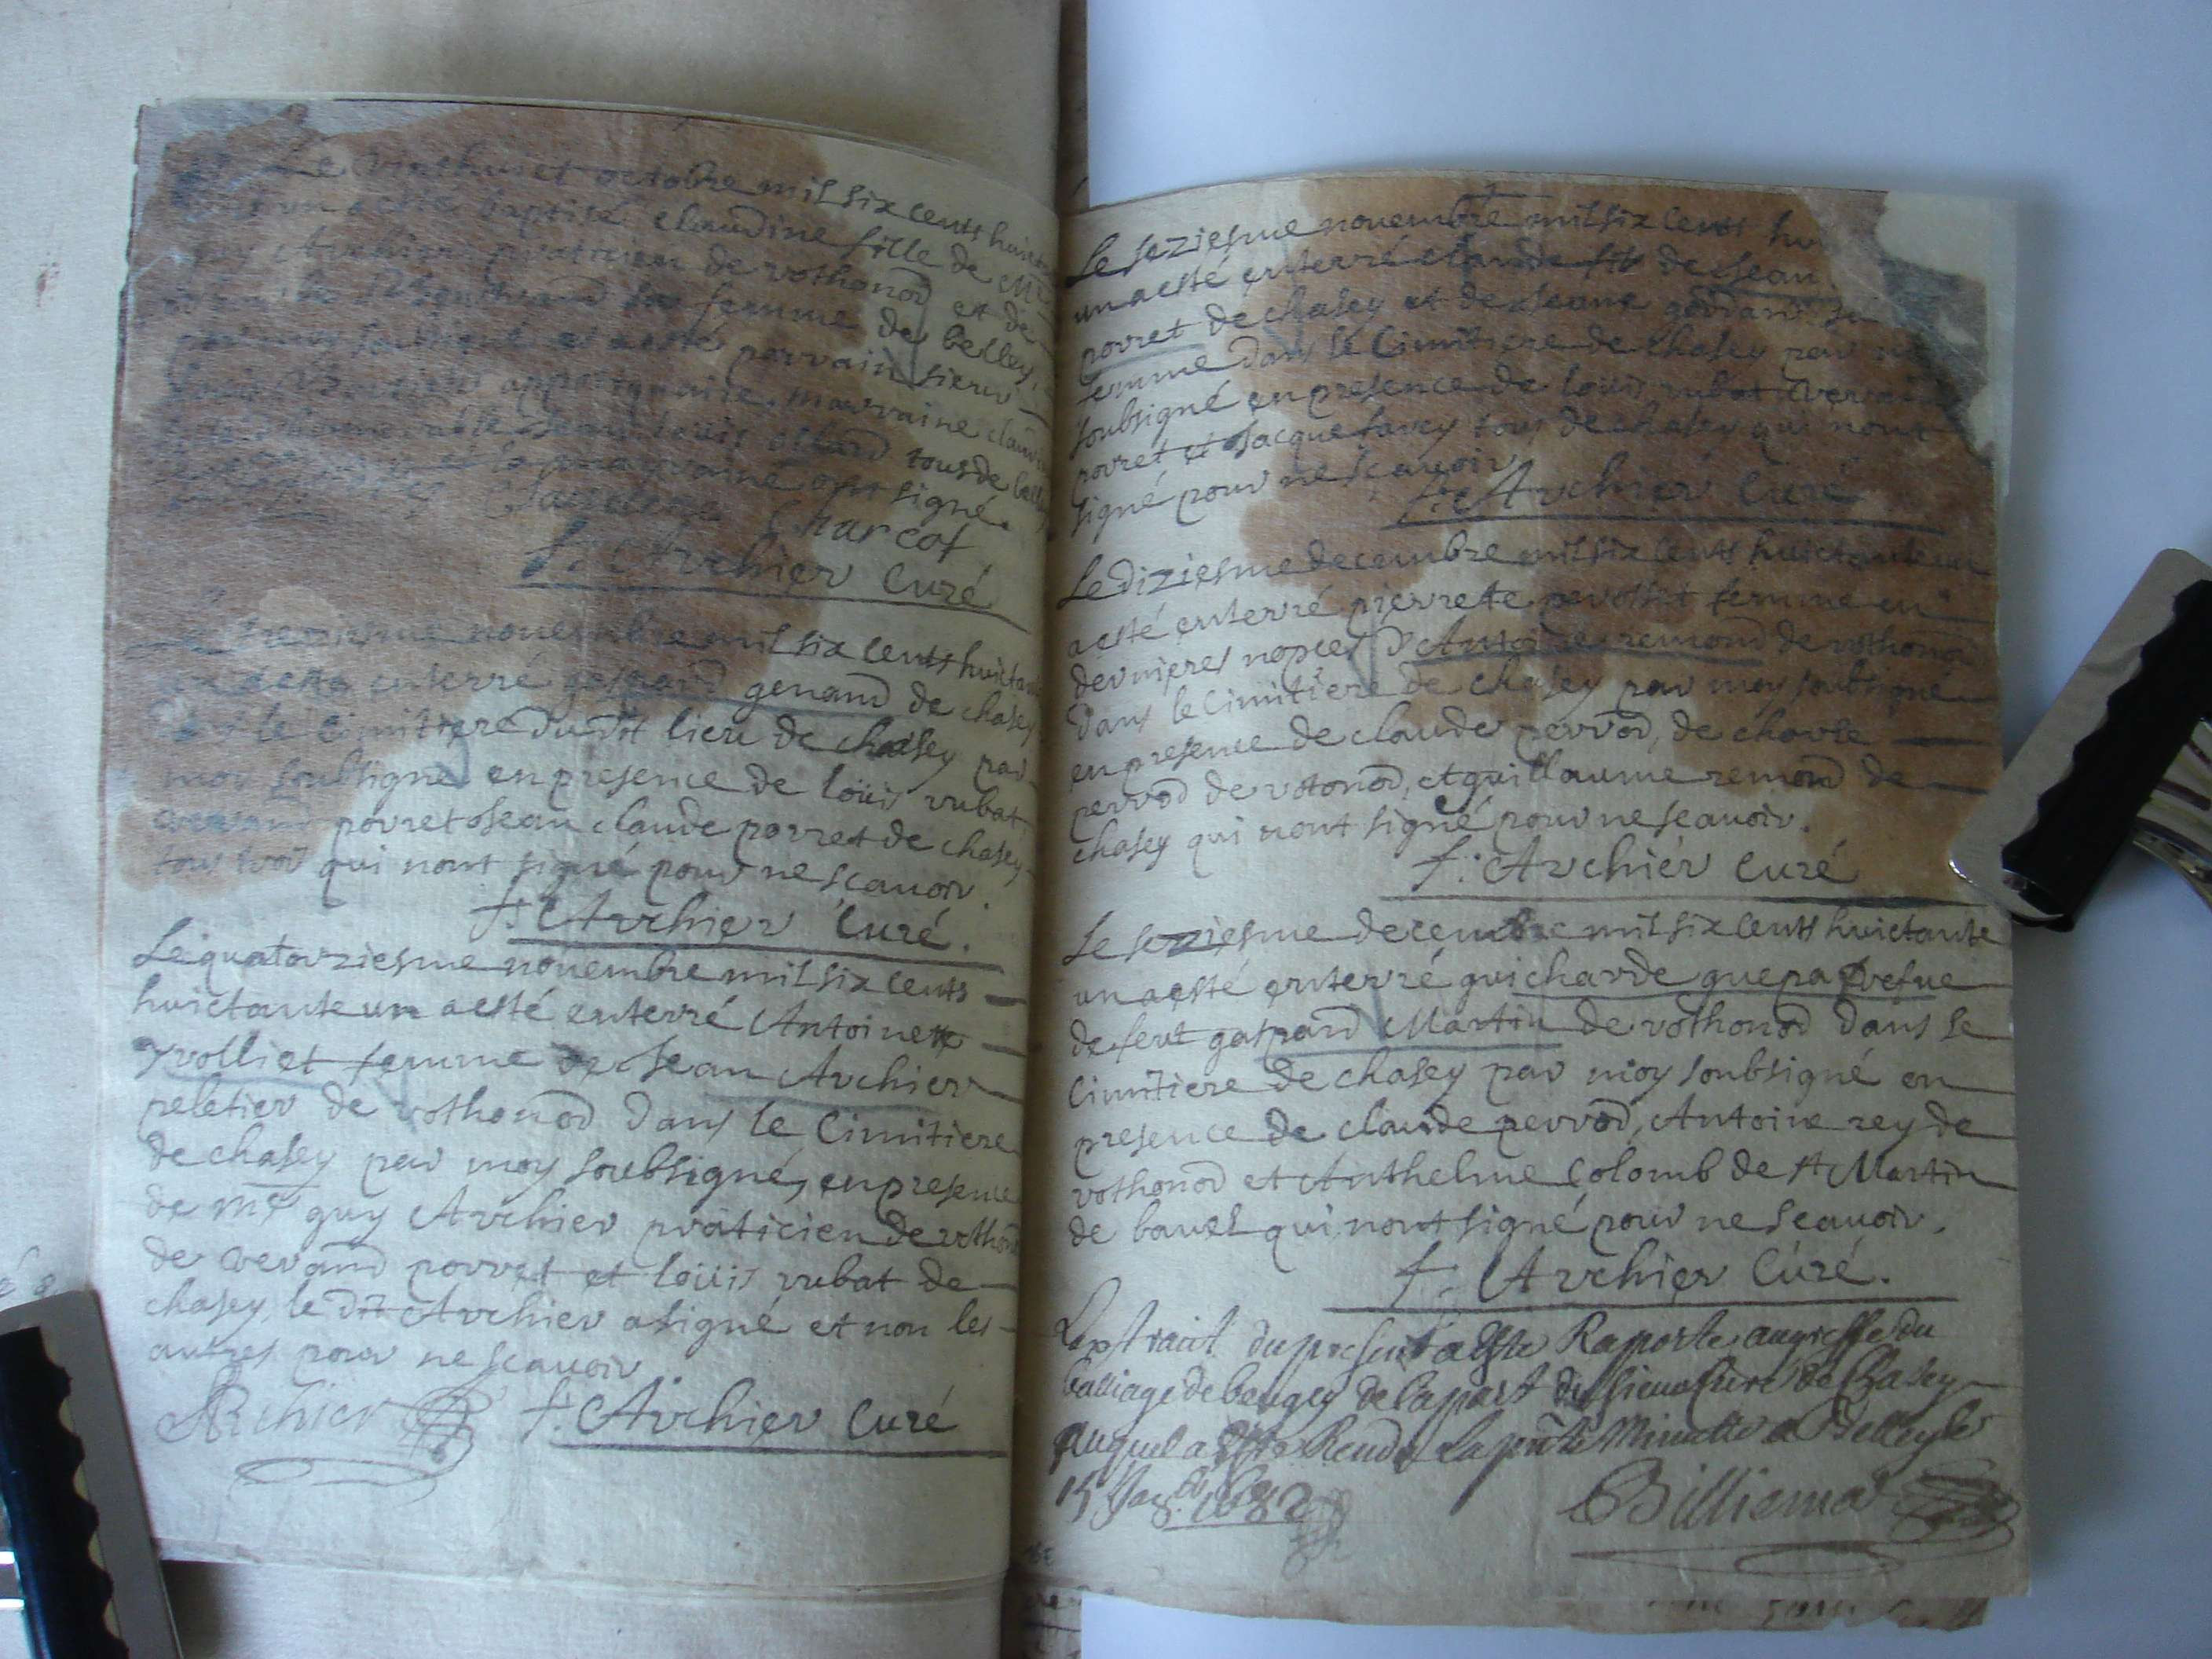 Le vinthuict octobre mil six cents huicta
un a esté baptisé claudine fille de Mre
guy Archier praticien de vothonod et de
sa femme de belley,
par moy soubsigné et a esté parrain sieur
appotiquaire, marraine claudi
louis tous de belley
et la marraine ont signé.
Claudine Charcot
f. Archier Curé
Le treiziesme nouembre mil six cents huictante
un a esté enterré gaspard genand de chasey
dans le Cimitiere dudit lieu de chasey par
moy soubsigné en presence de louis rubat,
evrand porret Jean claude porret de chasey
tous trois qui n'ont signé pour ne scauoir.
f. Archier Curé.
Le quatorziesme nouembre mil six cents
huictante un a esté enterré Antoinette
yvolliet femme de Jean Archier
peletier de vothonod dans le Cimitiere
de chasey par moy soubsigné, en presence
de me guy Archier praticien de vothonod
de evrand porret et louis rubat de
chasey, le dit Archier a signé et non les
autres pour ne scauoir.
Archier f. Archier Curé
Le seziesme nouembre mil six cents hui
un a esté enterré claude fils de Jean
porret de chasey et de Jeane goddard sa
femme dans le Cimitiere de chasey par moy
soubsigné en presence de louis rubat evrand
porret et Jacque favey tous de chasey qui n'ont
signé pour ne scauoir.
f. Archier Curé
Le diziesme decembre mil six cents huictante un
a esté enterré pierrette perosset femme en
dernieres nopces d'Antoine remond de vothonod
dans le Cimitiere de chasey par moy soubsigné
en presence de claude perrod, de charle
perrod de votonod, et guillaume remond de
chasey qui n'ont signé pour ne scauoir.
f. Archier Curé
Le seziesme decembre mil six cents huictante
un a esté enterré guicharde guepa vefue
de feut gaspard Martin de vothonod dans le
Cimitiere de chasey par moy soubsigné en
presence de claude perrod, Antoine rey de
vothonod et Anthelme Colomb de st Martin
de bavel qui n'ont signé pour ne scauoir.
f. Archier Curé.
L'extraict du present a esté Raporté au greffe du
balliage de beugey de la part du sieur Curé de Chasey
Auquel a esté Rendu la pnte Minutte a Belley le
15 Janr 1682
Billiema